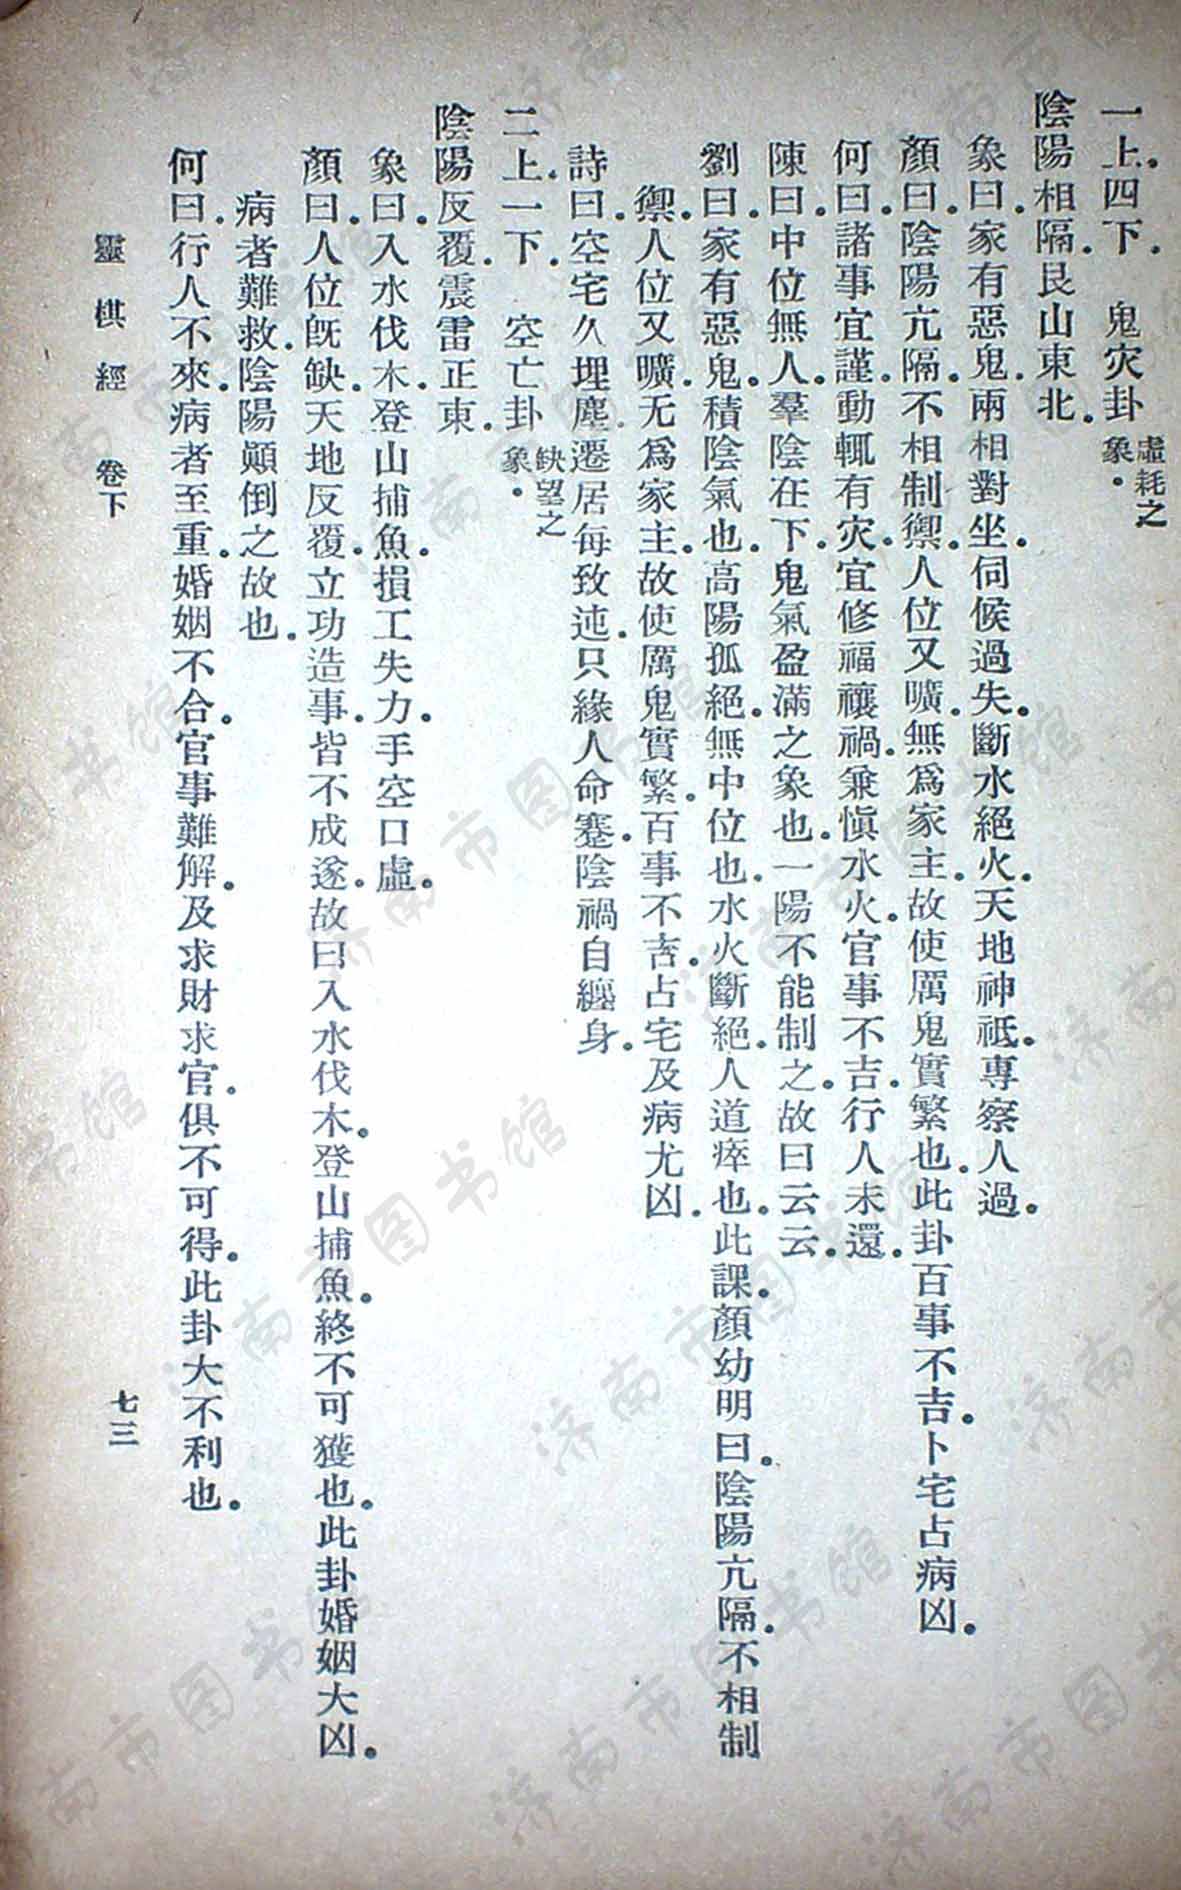 一上。四下。　鬼灾卦虛耗之象。
陰陽相隔。艮山東北。
象曰。家有惡鬼。兩相對坐。伺候過失。斷水絕火。天地神祇。專察人過。
顏曰。陰陽亢隔。不相制禦。人位又曠。無爲家主。故使厲鬼實繁也。此卦百事不吉。卜宅占病凶。
何曰。諸事宜謹。動輒有灾。宜修福禳禍。兼愼水火。官事不吉。行人未還。
陳曰。中位無人。羣陰在下。鬼氣盈滿之象也。一陽不能制之。故曰云云。
劉曰。家有惡鬼。積陰氣也。高陽孤絕。無中位也。水火斷絕。人道瘁也。此課。顏幼明曰。陰陽亢隔。不相制
禦。人位又曠。无爲家主。故使厲鬼實繁。百事不吉。占宅及病尤凶。
詩曰。空宅久埋塵。遷居每致迍。只緣人命蹇。陰禍自纏身。
二上。一下。　空亡卦缺望之象。
陰陽反覆。震雷正東。
象曰。入水伐木。登山捕魚。損工失力。手空口虛。
顏曰。人位旣缺。天地反覆。立功造事。皆不成遂。故曰入水伐木。登山捕魚。終不可獲也。此卦婚姻大凶。
病者難救。陰陽顚倒之故也。
何曰。行人不來。病者至重。婚姻不合。官事難解。及求財求官。俱不可得。此卦大不利也。
靈棋經　卷下　七三
济南市图书馆